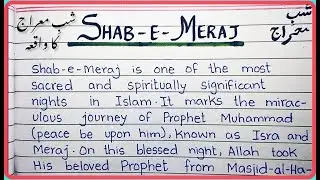 شب معراج
کا واقعہ
SHAB-E-MERAJ
شب
معراج
Shab-e-Meraj is one of the most
sacred and spiritually significant
nights in Islam. It marks the mirac-
ulous journey of Prophet Muhammad
(peace be upon him), known as Isra and
Meraj. On this blessed night, Allah took
His beloved Prophet from Masjid-al-Ha-